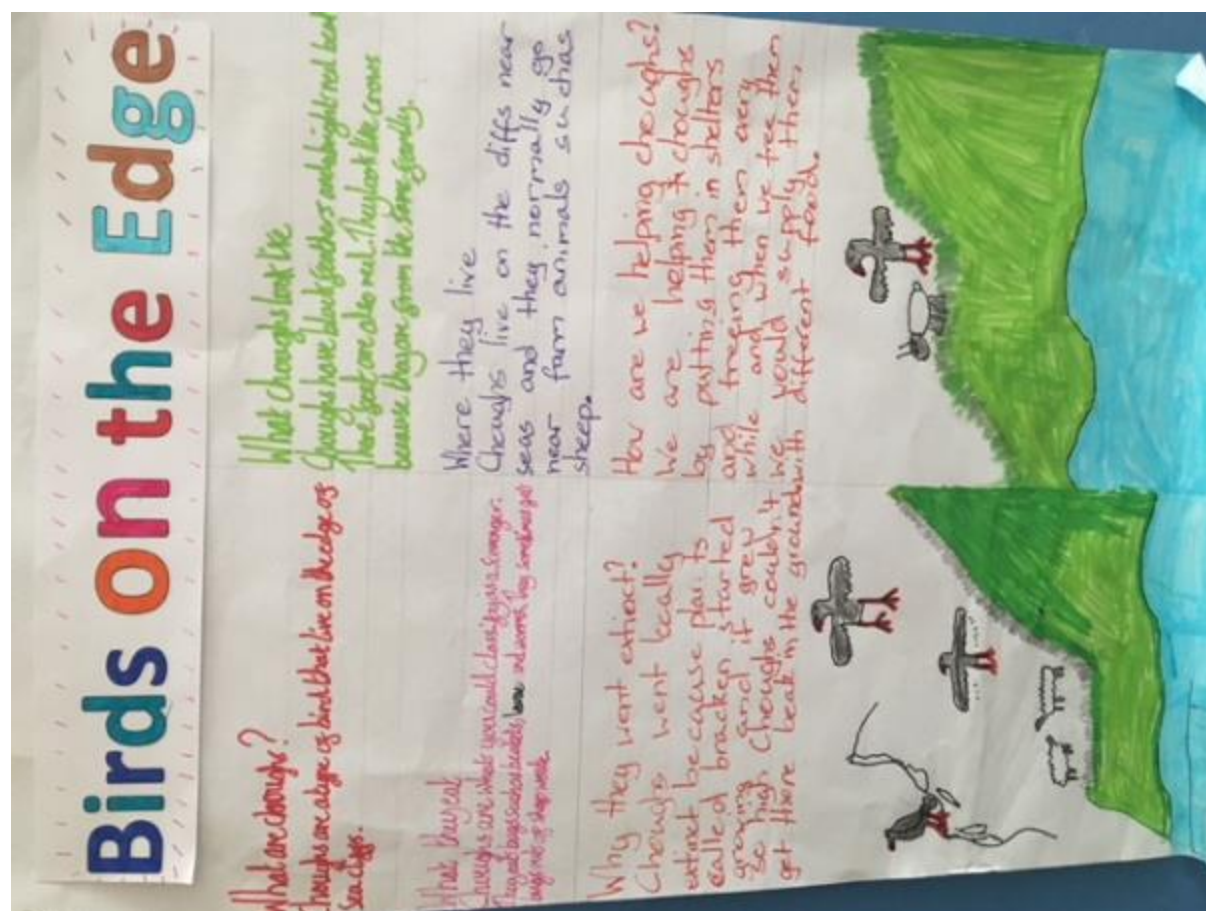 Birds on the Edge
What are choughs?
Choughs are a type of bird that live on the edge of
sea cliffs.
What choughs look like
Choughs have black feathers and a bright red beak
There feet are also red. They look like crows
because they are from the same family.
What they eat
Choughs are what you could classify as a scavenger.
They eat bugs such as beetles and worms they sometimes get
bugs out of sheep
Where they live
Choughs live on the cliffs near
seas and they normally go
near farm animals such as
sheep.
Why they went extinct?
Choughs went locally
extinct because plants
called bracken started
growing and if grew
so high Choughs couldn't
get there beak in the ground
How are we helping choughs?
We are helping choughs
by putting them in shelters
and freeing them every
while and when we free them
we would supply them
with different food.